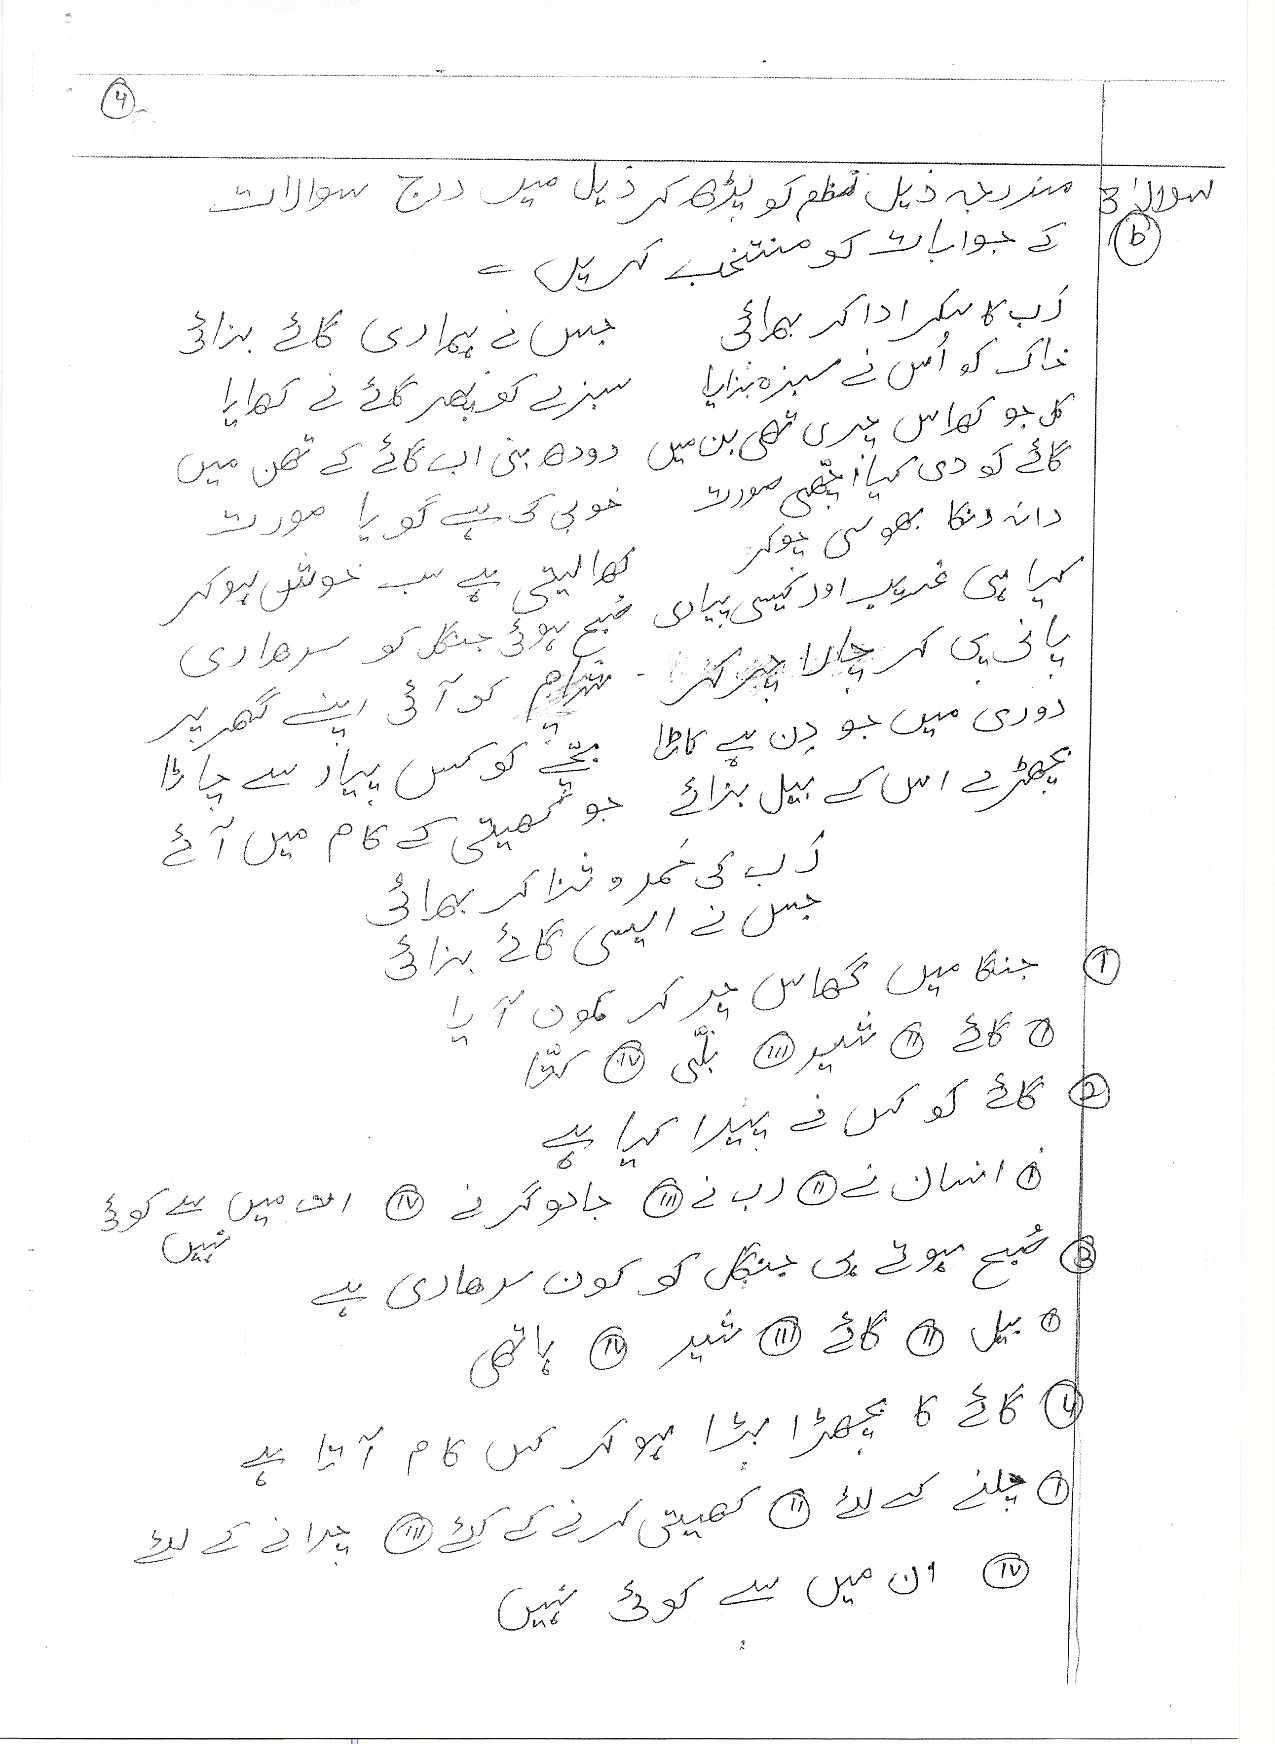 4
سوال 3 مندرجہ ذیل نظم کو پڑھ کر ذیل میں درج سوالات
(b) کے جوابات کو منتخب کریں ۔
رَب کا شکر ادا کر بھائی جس نے ہماری گائے بنائی
خاک کو اُس نے سبزہ بنایا سبزے کو پھر گائے نے کھایا
کل جو گھاس چری تھی بن میں دودھ بنی اب گائے کے تھن میں
گائے کو دی کیا اچھی صورت خوبی کی ہے گویا مورت
دانہ دنکا بھوسی چوکر کھا لیتی ہے سب خوش ہوکر
کیا ہی غریب اور کیسی پیاری صُبح ہوئی جنگل کو سدھاری
پانی پی کر چارا چر کر شام کو آئی اپنے گھر پر
دوری میں جو دِن ہے کاٹا بچّے کو کس پیار سے چاٹا
بچھڑے اس کے بیل بنائے جو کھیتی کے کام میں آئے
رَب کی حَمد و ثنا کر بھائی
جس نے ایسی گائے بنائی
(1) جنگا میں گھاس چر کر کون آیا
(i) گائے (ii) شیر (iii) بلّی (iv) کتّا
(2) گائے کو کس نے پیدا کیا ہے
(i) انسان نے (ii) رب نے (iii) جادوگر نے (iv) ان میں سے کوئی
نہیں
(3) صُبح ہوتے ہی جنگل کو کون سدھاری ہے
(i) بیل (ii) گائے (iii) شیر (iv) ہاتھی
(4) گائے کا بچھڑا بڑا ہو کر کس کام آتا ہے
(i) چلنے کے لئے (ii) کھیتی کرنے کے لئے (iii) چرانے کے لئے
(iv) ان میں سے کوئی نہیں